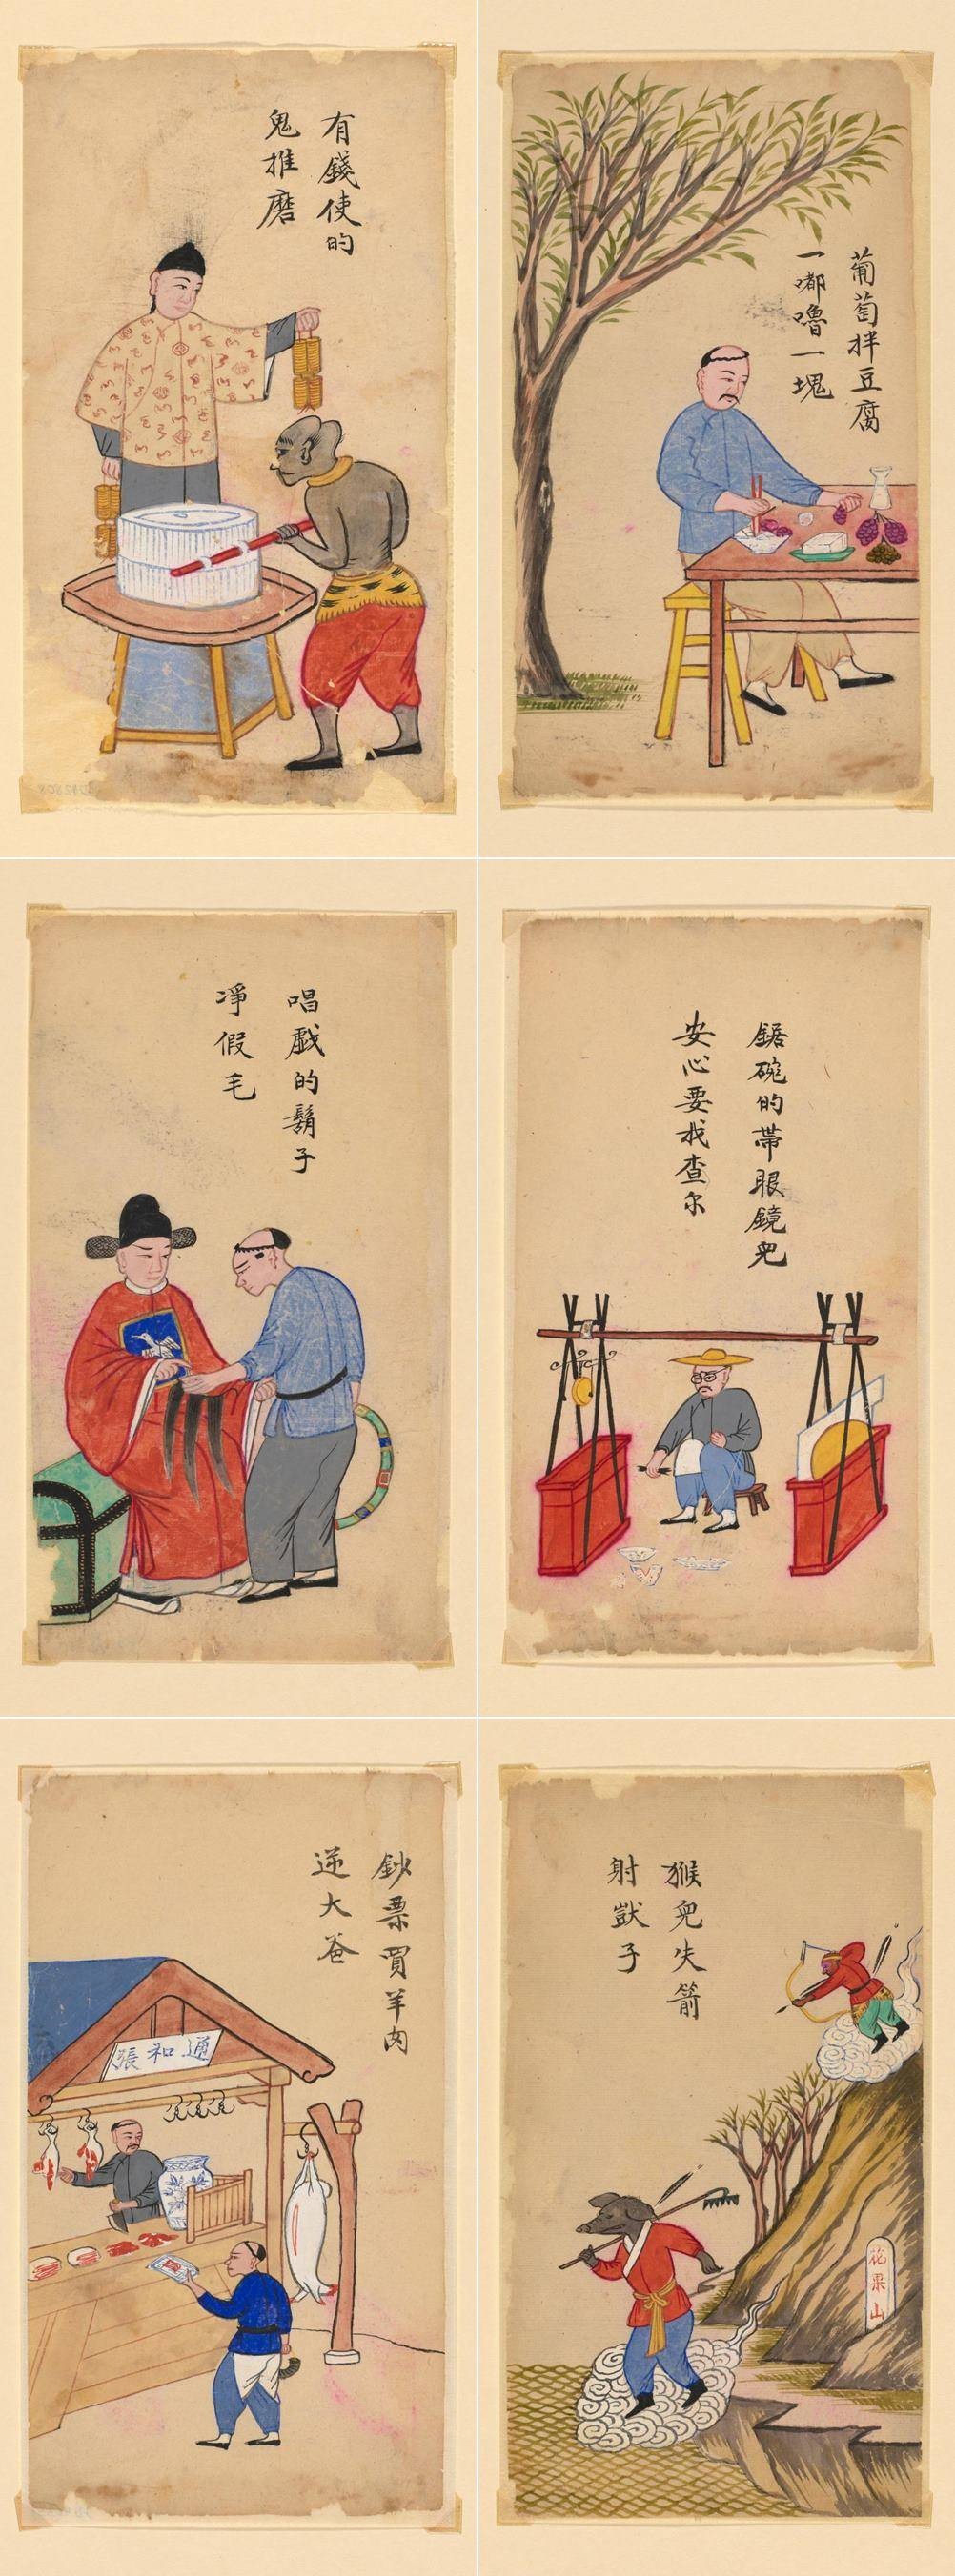 有錢使的
鬼推磨
葡萄拌豆腐
一嘟嚕一塊
唱戲的鬍子
凈假毛
鋸碗的帶眼鏡兜
安心要找查尔
鈔票買羊肉
逆大爸
張和通
猴兜失箭
射獃子
花果山